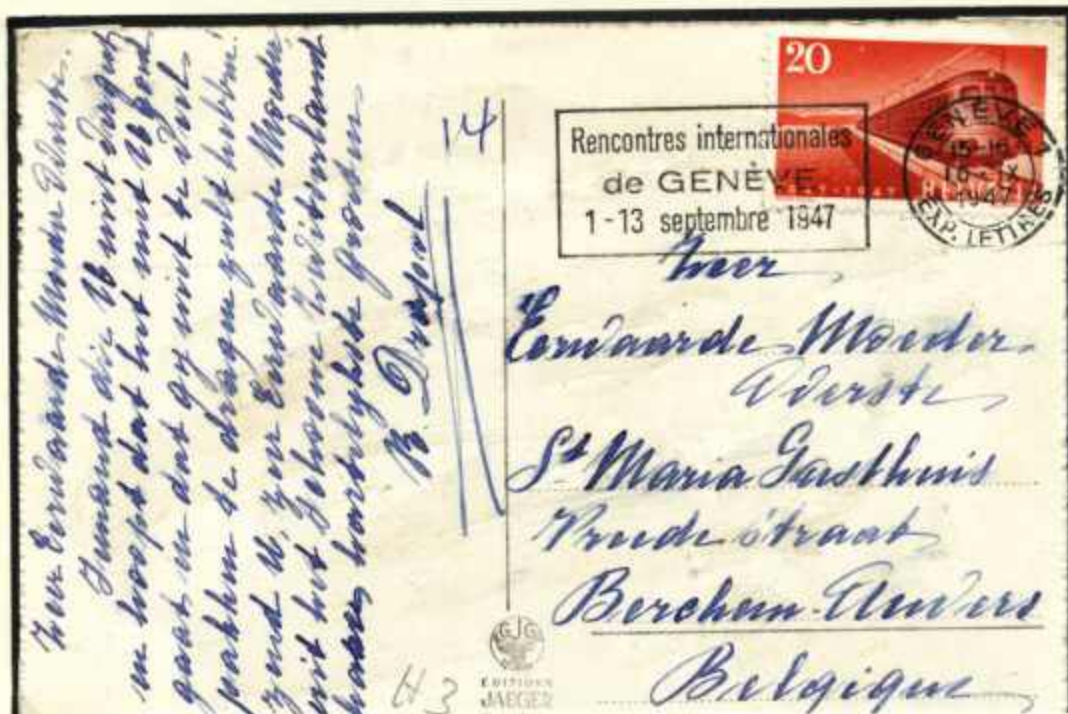 Zeer Eerwaarde Moeder Overste.
Iemand die U niet vergeet
en hoopt dat het met U goed
gaat en dat gy niet te veel
pakken te dragen zult hebben.
zend U, Zeer Eerwaarde Moeder
uit het schoone Zwitserland
hartelykste groeten
14
20
Rencontres internationales
de GENÈVE
1-13 septembre 1947
GENÈVE 1
15-16
IX
1947
EXP. LETTRES
HELVETIA
Zeer
Eerwaarde Moeder
Overste
St Maria Gasthuis
Vrede straat
Berchem-Anvers
Belgique
EDITIONS
JAEGER
H 3